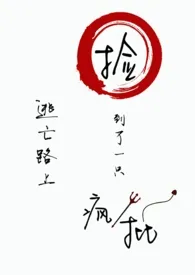 逃亡路上
捡
到了一只
疯批